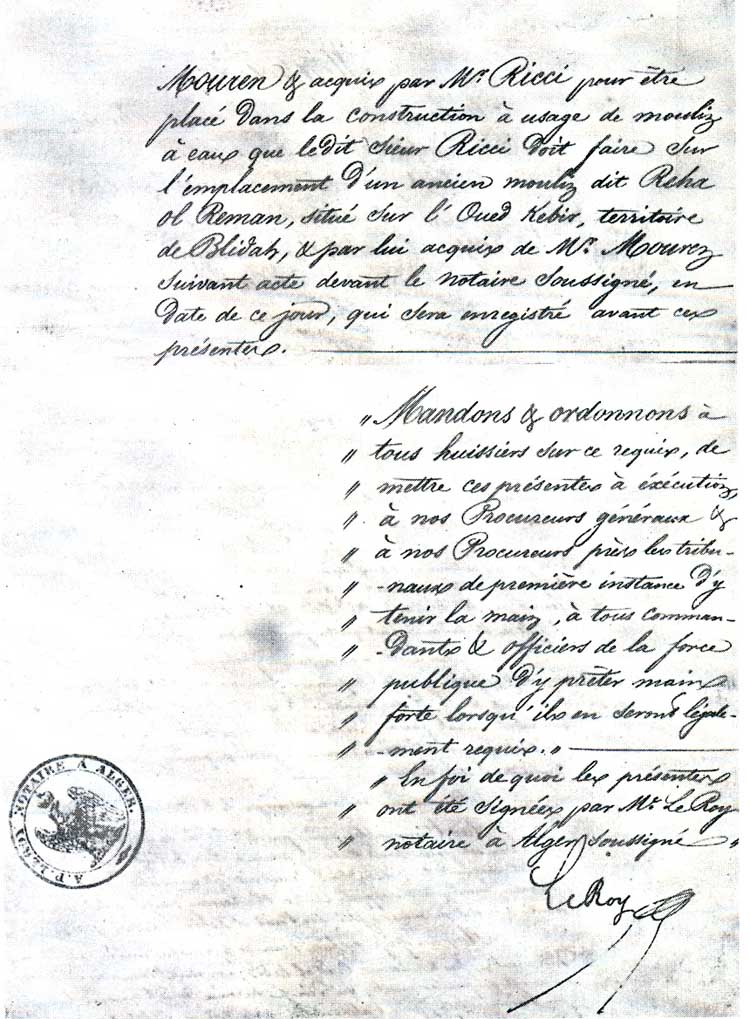 Mouren & acquis par Mr. Ricci pour être
placé dans la construction à usage de moulin
à eaux que le dit Sieur Ricci doit faire sur
l'emplacement d'un ancien moulin dit Reha
ol Reman, situé sur l'Oued Kebir, territoire
de Blidah, & par lui acquis de Mr. Mouren
suivant acte devant le notaire soussigné, en
date de ce jour, qui sera enregistré avant ces
présentes.
" Mandons & ordonnons à
" tous huissiers sur ce requis, de
" mettre ces présentes à éxécution,
" à nos Procureurs généraux &
" à nos Procureurs près les tribu-
" -naux de première instance d'y
" tenir la main, à tous comman-
" -dants & officiers de la force
" publique d'y prêter main
" forte lorsqu'ils en seront légale-
" -ment requis. "
" En foi de quoi les présentes
" ont été signées par Mr. Le Roy
" notaire à Alger soussigné "
Le Roy
NOTAIRE A ALGER.